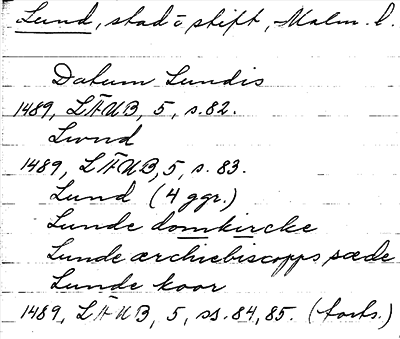 Lund, stad o stift, Malm. l.
Datum Lundis
1489, LÄUB, 5, s. 82.
Lwnd
1489, LÄUB, 5, s. 83.
Lund (4 ggr.)
Lunde domkircke
Lunde ærchiebiscopps sæde
Lunde koor
1489, LÄUB, 5, ss. 84, 85. (forts.)